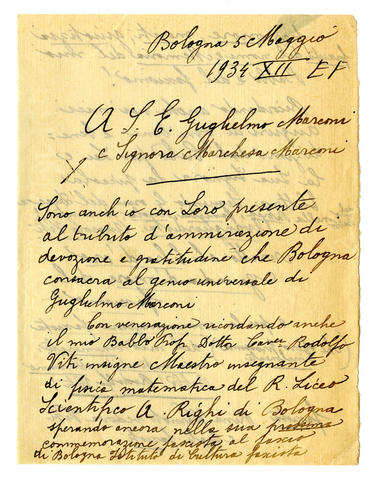 Bologna 5 Maggio
1934 XII EF
A S. E. Guglielmo Marconi
e Signora Marchesa Marconi
Sono anch'io con Loro presente
al tributo d'ammirazione di
devozione e gratitudine che Bologna
consacra al genio universale di
Guglielmo Marconi
Con venerazione ricordando anche
il mio Babbo Prof. Dottor Cavr Rodolfo
Viti insigne Maestro insegnante
di fisica matematica del R. Liceo
Scientifico A. Righi di Bologna
sperando ancora nella sua prossima
commemorazione fascista al fascio
di Bologna Istituto di Cultura fascista